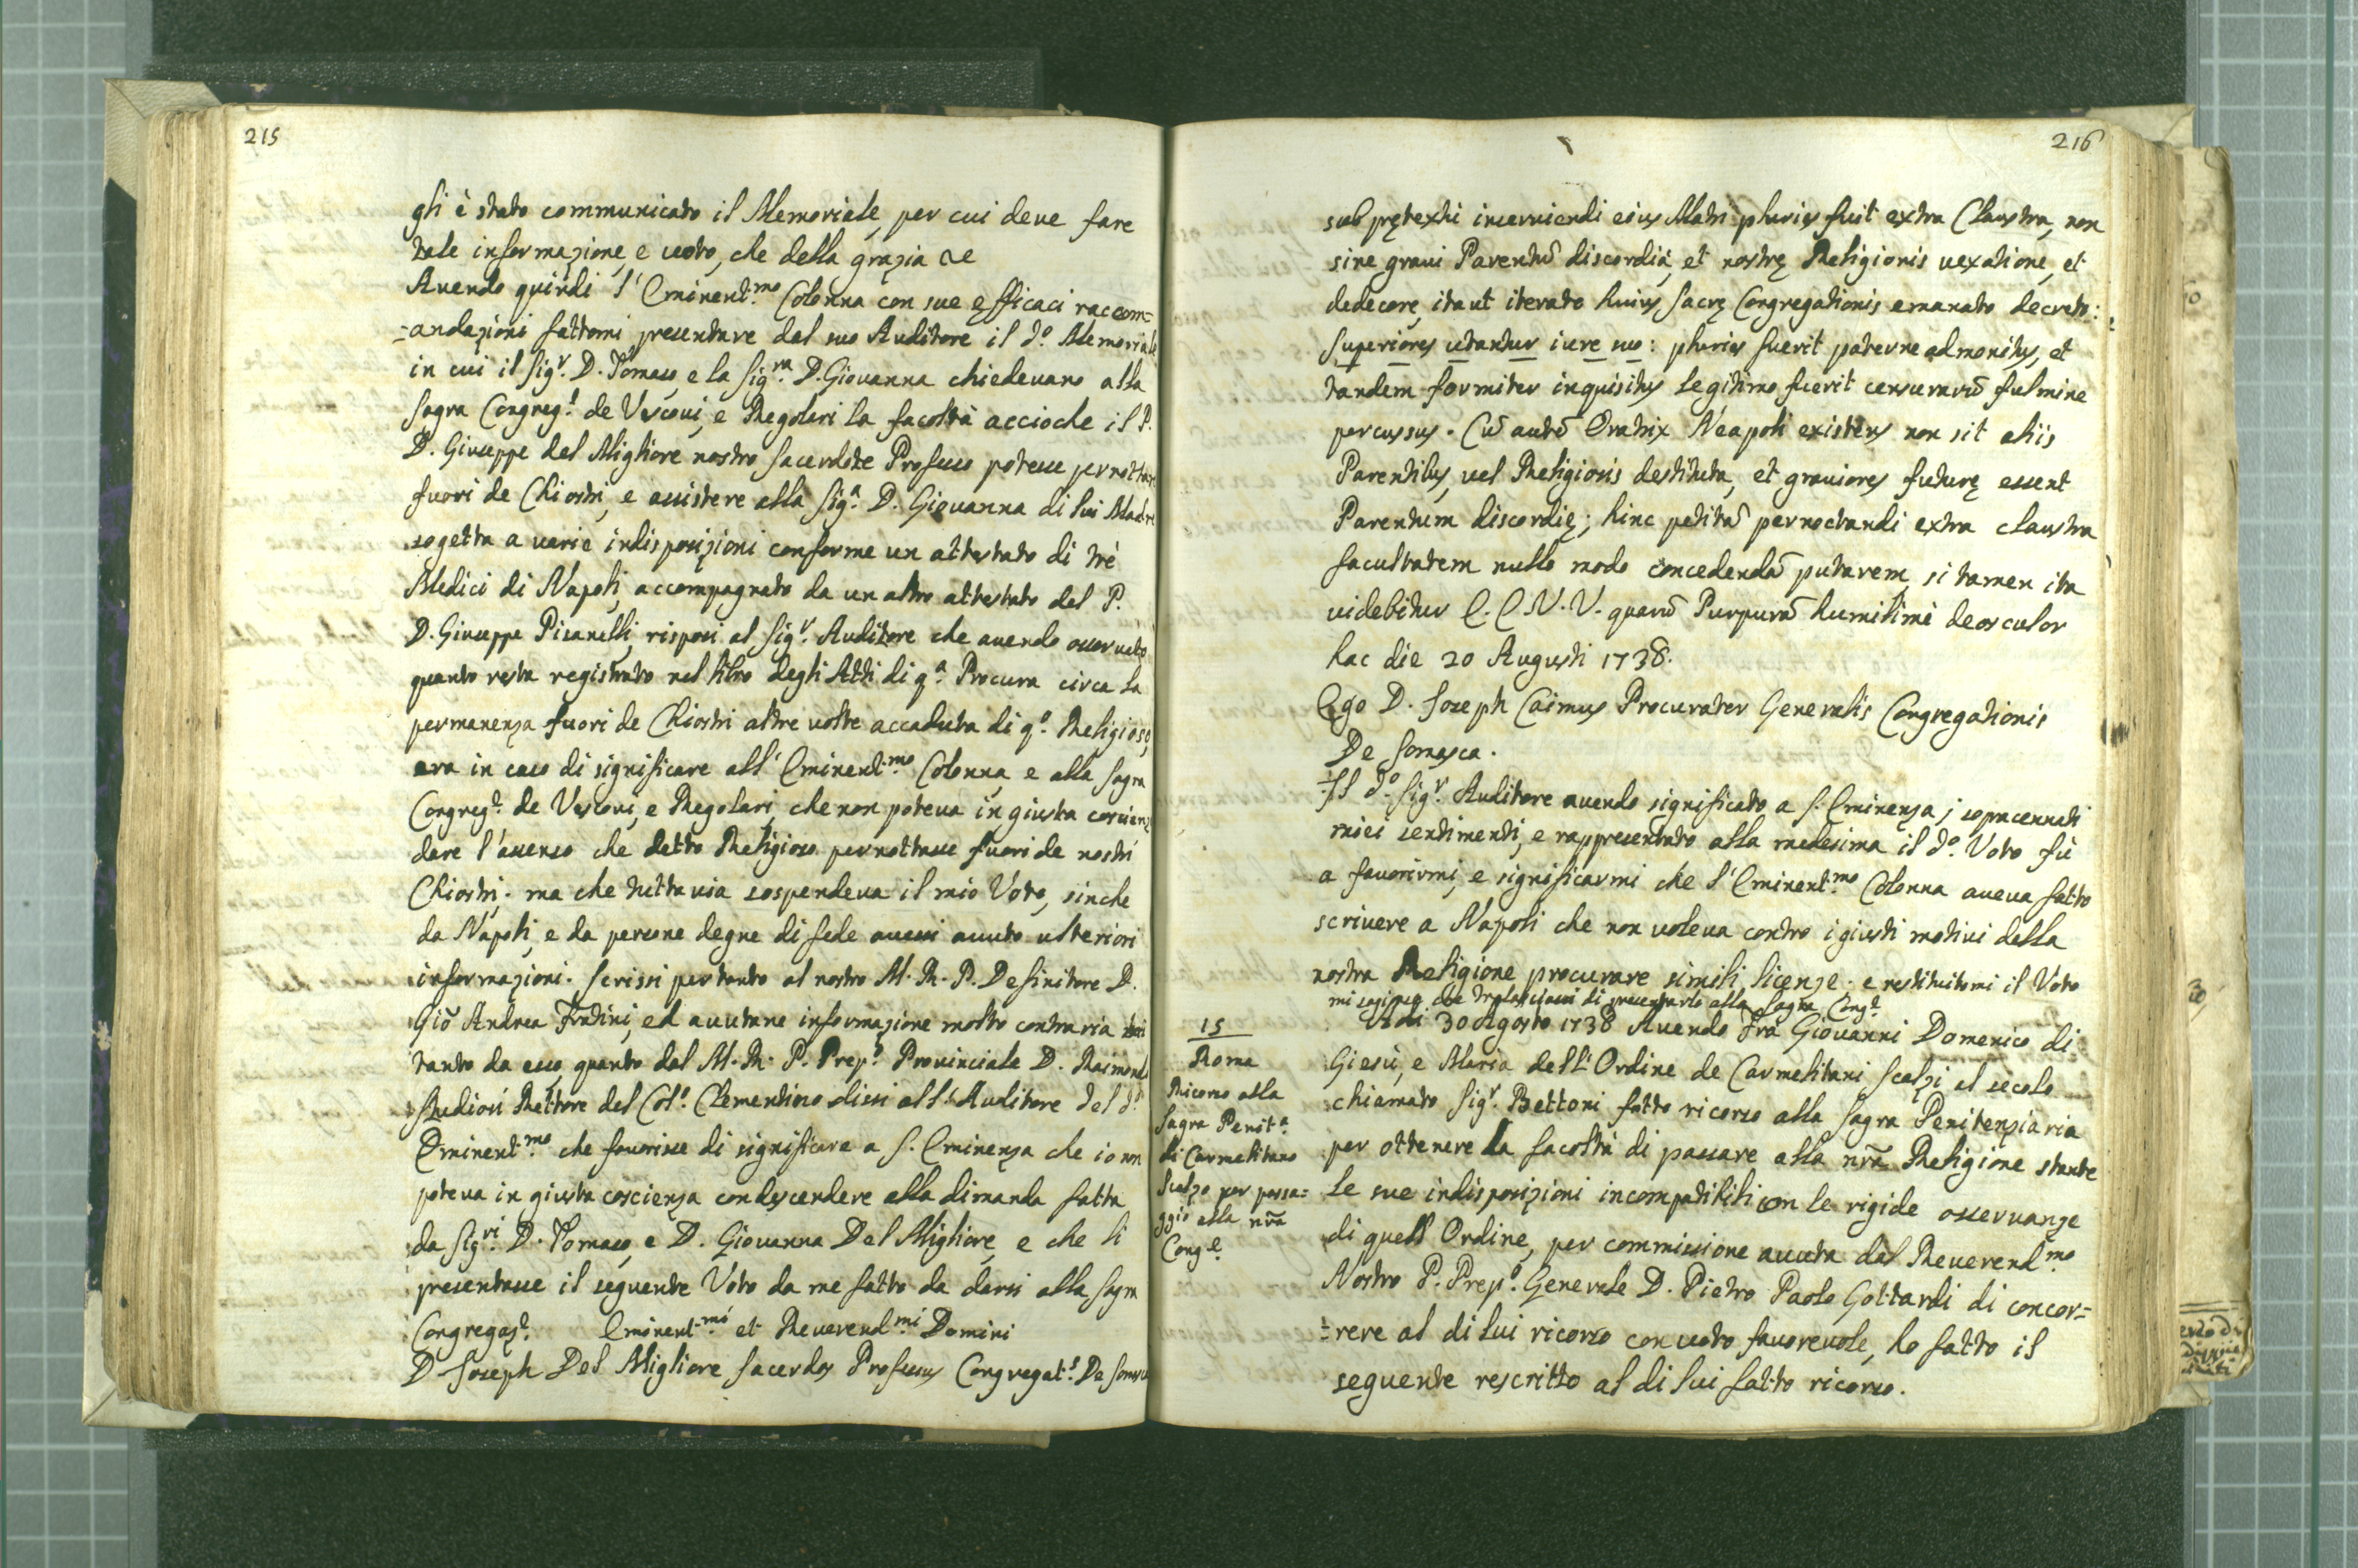 215
gli è stato communicato il Memoriale, per cui deve fare
tale informazione, e voto, che della grazia &c
Avendo quindi l'Eminent.mo Colonna con sue efficaci raccom=
=andazioni fattomi presentare dal suo Auditore il d.o Memoriale
in cui il Sig.r D. Tomaso, e la Sig.ra D. Giovanna chiedevano alla
Sagra Congreg.e de Vescovi, e Regolari la facoltà accioche il P.
D. Giuseppe del Migliore nostro Sacerdote Professo potesse pernottare
fuori de Chiostri, e assistere alla Sig.a D. Giovanna di lui Madre
sogetta a varie indisposizioni conforme un attestato di trè
Medici di Napoli, accompagnato da un altro attestato del P.
D. Giuseppe Pisanelli, risposi al Sig.r Auditore che avendo osservato
quanto resta registrato nel libro degli Atti di q.a Procura circa la
permanenza fuori de Chiostri altre volte accaduta di q.o Religioso,
era in caso di significare all'Eminent.mo Colonna, e alla Sagra
Congreg.e de Vescovi, e Regolari, che non poteva in giusta coscienza
dare l'assenso che detto Religioso pernottasse fuori de nostri
Chiostri; ma che tuttavia sospendeva il mio Voto, sinche
da Napoli, e da persone degne di fede avessi avuto ulteriori
informazioni. Scrissi pertanto al nostro M. R. P. Definitore D.
Giō Andrea Fratini, ed avutane informazione molto contraria
tanto da esso, quanto dal M. R. P. Prep.o Provinciale D. Raimondo
Studiosi Rettore del Col.o Clementino dissi all'Auditore del d.o
Eminent.mo che favorisse di significare a S. Eminenza che io non
poteva in giusta coscienza condescendere alla dimanda fatta
da Sig.ri D. Tomaso, e D. Giovanna Del Migliore, e che li
presentasse il seguente Voto da me fatto da darsi alla Sagra
Congregaz.e Eminent.mi et Reverend.mi Domini
D. Joseph Del Migliore Sacerdos Professus Congregat.s De Somasca
216
sub prętextu inserviendi eius Matri pluries fuit extra Claustra, non
sine gravi Parentū discordia, et nostrę Religionis vexatione, et
dedecore, ita ut iterato huius Sacrę Congregationis emanato decreto:
Superiores utantur iure suo: pluries fuerit paterne admonitus, et
tandem formiter inquisitus legitimo fuerit censurarū fulmine
percussus. Cū autē Oratrix Neapoli existens non sit aliis
Parentibus, vel Religiosis destituta, et graviores futurę essent
Parentum discordię; hinc petitā pernoctandi extra claustra
facultatem nullo modo concedendā putarem, si tamen ita
videbitur E. E. V. V. quarū Purpurā humilimè deosculor
hac die 20 Augusti 1738.
Ego D. Joseph Caimus Procurator Generalis Congregationis
De Somasca.
Il d.o Sig.r Auditore avendo significato a S. Eminenza i sopracennati
miei sentimenti, e rappresentato alla medesima il d.o Voto fù
a favorirmi, e significarmi che l'Eminent.mo Colonna aveva fatto
scrivere a Napoli che non voleva contro i giusti motivi della
nostra Religione procurare simili licenze. e restituitomi il Voto
mi che tralasciassi di presentarlo alla Sagra Cong.e
15
Roma
Ricorso alla
Sagra Penit.a
di Carmelitano
Scalzo per passa=
ggio alla nrā
Cong.e
Adi 30 Agosto 1738 Avendo Frà Giovanni Domenico di
Giesù, e Maria dell'Ordine de Carmelitani Scalzi al secolo
chiamato Sig.r Bettoni fatto ricorso alla Sagra Penitenziaria
per ottenere la facoltà di passare alla nrā Religione stante
le sue indisposizioni incompatibili con le rigide osservanze
di quell'Ordine, per commissione avuta dal Reverend.mo
Nostro P. Prep.o Generale D. Pietro Paolo Gottardi di concor=
=rere al di lui ricorso con voto favorevole, ho fatto il
seguente rescritto al di lui fatto ricorso.